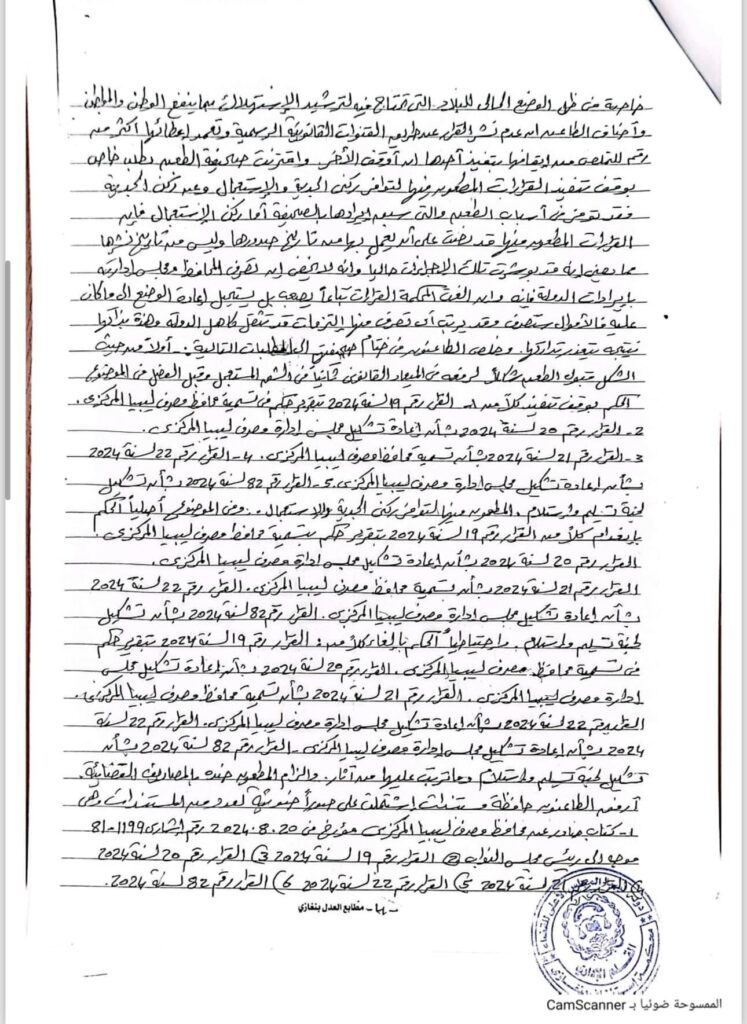 خاصة في ظل الوضع المالي للبلاد التي تحتاج فيه لترشيد الإستهلاك بما ينفع الوطن والمواطن
وأضاف الطاعنين ان عدم نشر القرار عبر القنوات القانونية الرسمية وتعمد إعطائها أكثر من
رقم للتملص من إيقافها بتنفيذ أحدها ان أوقف الآخر. واقترنت صحيفة الطعن بطلب خاص
بوقف تنفيذ القرارات المطعون فيها لتوافر ركني الجدية والإستعجال وعن ركن الجدية
فقد توفر في أسباب الطعن والتي سبق إيرادها بالصحيفة أما ركن الإستعجال فإن
القرارات المطعون فيها قد نصت على أن يعمل بها من تاريخ صدورها وليس من تاريخ نشرها
مما يعني انه قد بوشرت تلك الإجراءات حاليا وانه لا يخفى إن تصرف المحافظ ومجلس إدارته
بإيرادات الدولة فإنه وان الغت المحكمة القرارات تباعاً يصعب بل يستحيل إعادة الوضع الى ماكان
عليه فالأموال ستصرف وقد يرتب أي تصرف منها التزمات قد تثقل كاهل الدولة وهذه بذاتها
نتيجة يتعذر تداركها. وخلص الطاعنون في ختام صحيفتهم الى الطلبات التالية :- أولاً من حيث
الشكل قبول الطعن شكلاً لرفعه في الميعاد القانوني ثانياً في الشق المستعجل وقبل الفصل في الموضوع
الحكم بوقف تنفيذ كلاً من 1- القرار رقم 19 لسنة 2024 بتقرير حكم في تسمية محافظ مصرف ليبيا المركزي.
2- القرار رقم 20 لسنة 2024 بشأن إعادة تشكيل مجلس إدارة مصرف ليبيا المركزي.
3- القرار رقم 21 لسنة 2024 بشأن تسمية محافظ مصرف ليبيا المركزي. 4- القرار رقم 22 لسنة 2024
بشأن إعادة تشكيل مجلس إدارة مصرف ليبيا المركزي 5- القرار رقم 82 لسنة 2024 بشأن تشكيل
لجنة تسليم واستلام. المطعون فيها لتوافر ركني الجدية والاستعجال .. وفي الموضوع أصلياً الحكم
بإنعدام كلاً من القرار رقم 19 لسنة 2024 بتقرير حكم بتسمية محافظ مصرف ليبيا المركزي.
القرار رقم 20 لسنة 2024 بشأن إعادة تشكيل مجلس إدارة مصرف ليبيا المركزي.
القرار رقم 21 لسنة 2024 بشأن تسمية محافظ مصرف ليبيا المركزي. القرار رقم 22 لسنة 2024
بشأن إعادة تشكيل مجلس إدارة مصرف ليبيا المركزي. القرار رقم 82 لسنة 2024 بشأن تشكيل
لجنة تسليم واستلام. واحتياطياً الحكم بإلغاء كلاً من : القرار رقم 19 لسنة 2024 بتقرير حكم
في تسمية محافظ مصرف ليبيا المركزي. القرار رقم 20 لسنة 2024 بشأن إعادة تشكيل مجلس
إدارة مصرف ليبيا المركزي. القرار رقم 21 لسنة 2024 بشأن تسمية محافظ مصرف ليبيا المركزي.
القرار رقم 22 لسنة 2024 بشأن إعادة تشكيل مجلس إدارة مصرف ليبيا المركزي. القرار رقم 22 لسنة
2024 بشأن إعادة تشكيل مجلس إدارة مصرف ليبيا المركزي. القرار رقم 82 لسنة 2024 بشأن
تشكيل لجنة تسليم واستلام وماترتب عليها من آثار. والزام المطعون ضده بالمصاريف القضائية.
أرفق الطاعنون حافظة مستندات إشتملت على صوراً ضوئية لعدد من المستندات وهي
1- كتاب صادر عن محافظ مصرف ليبيا المركزي مؤرخ في 2024.8.20 رقم إشاري 1199-81
موجه الى رئيس مجلس النواب 2) القرار رقم 19 لسنة 2024 3) القرار رقم 20 لسنة 2024
4) القرار رقم 21 لسنة 2024 5) القرار رقم 22 لسنة 2024 6) القرار رقم 82 لسنة 2024.
مطابع العدل بنغازي
الممسوحة ضوئيا بـ CamScanner